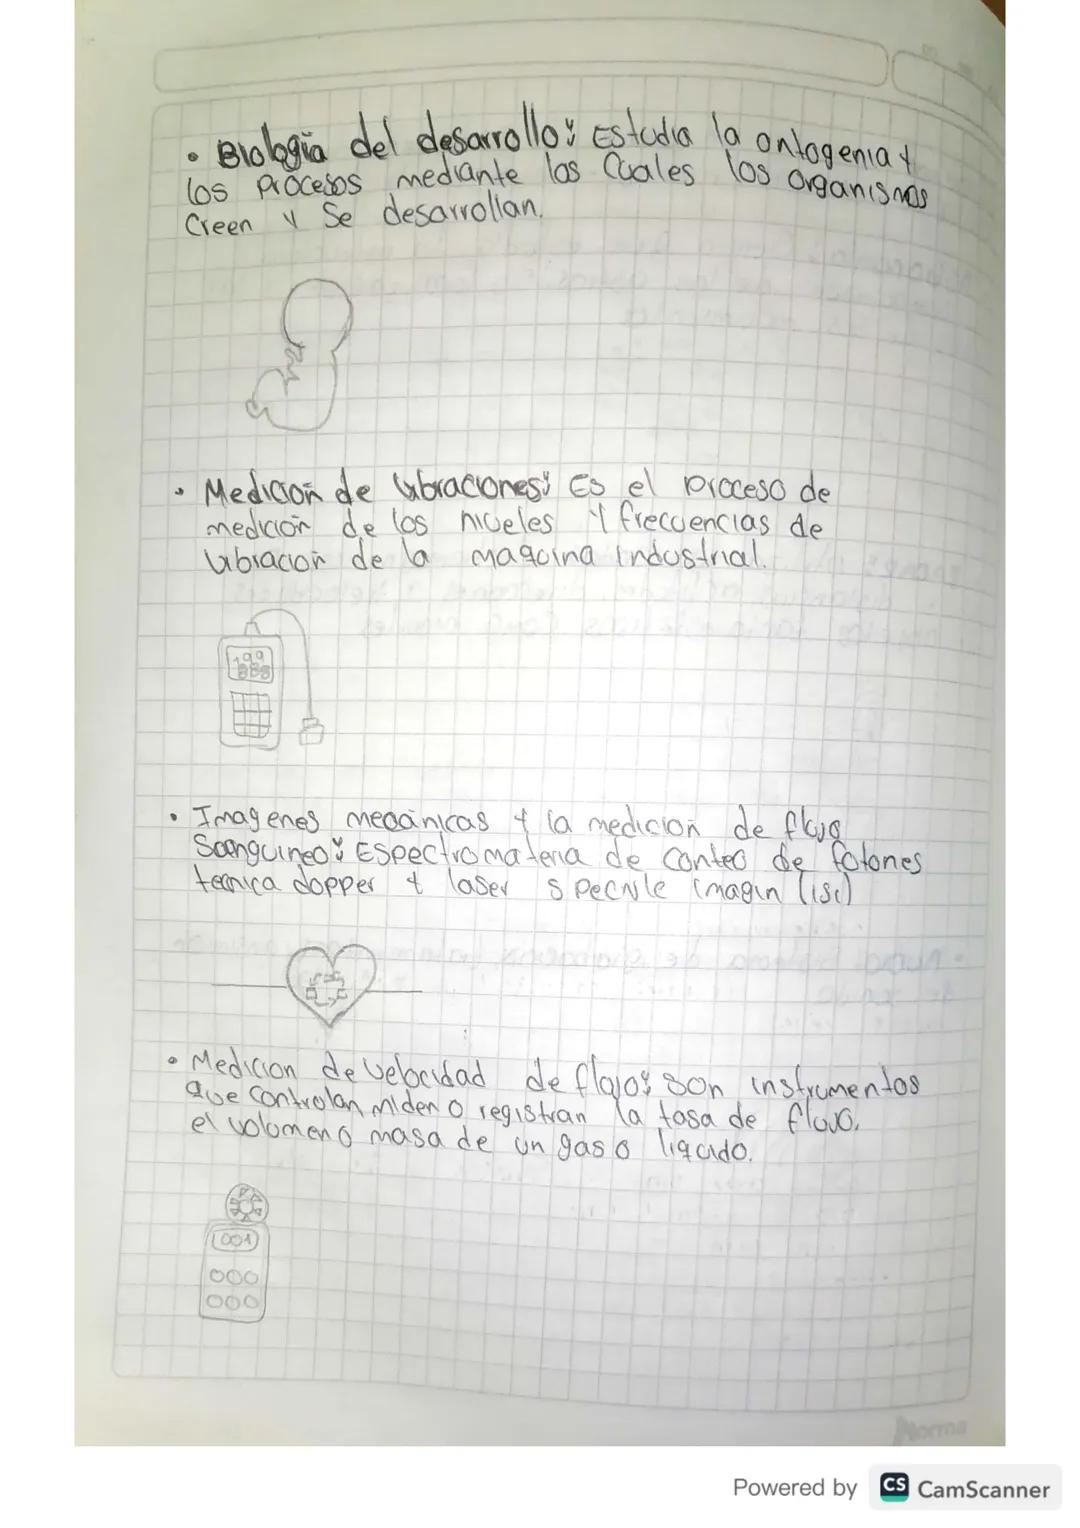 • Biología del desarrollo: Estudia la ontogenia y
los procesos mediante los Cuales los organismos
Creen y Se desarrollan.
• Medición de vibraciones: Es el proceso de
medición de los niveles y frecuencias de
vibración de la maquina industrial.
199
888
• Imagenes mecánicas y la medición de flujo
Sanguineo: Espectromateria de conteo de fotones
tecnica dopper y laser specule imagin (isc)
• Medicion de velocidad de flojo: son instrumentos
que controlan, miden o registran la tasa de flujo,
el volumen o masa de un gas o liquido.
1001
000
000
Norma
Powered by CS CamScanner